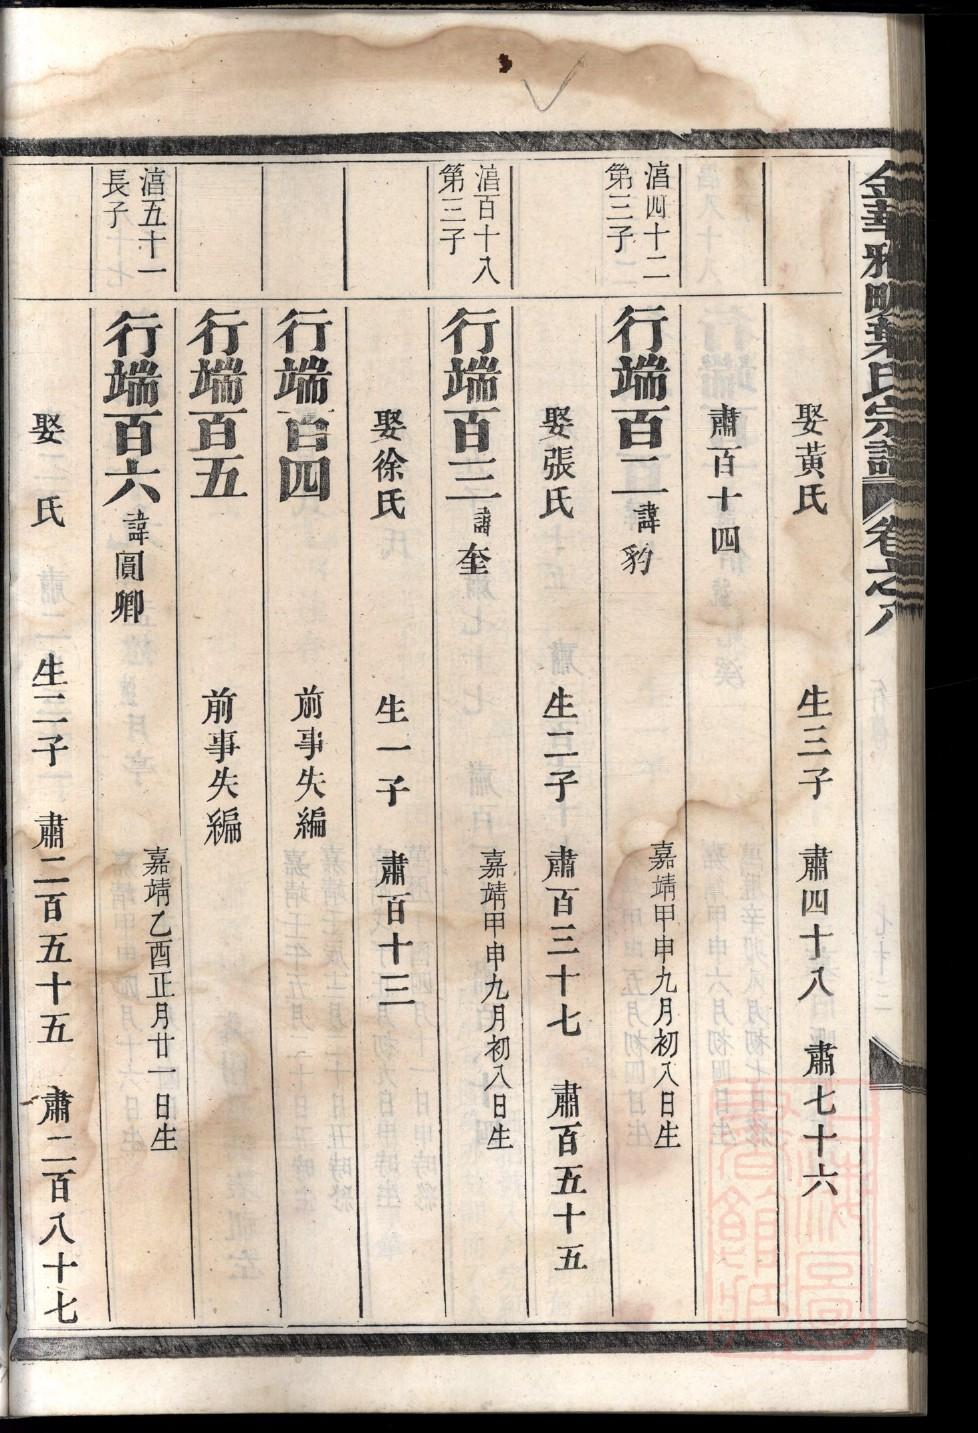 金華雅畈葉氏宗譜 卷之八
娶黃氏 生三子 肅四十八 肅七十六
肅百十四
滀四十二
第三子
行端百二 諱豹 嘉靖甲申九月初八日生
娶張氏 生二子 肅百三十七 肅百五十五
滀百十八
第三子
行端百三 諱奎 嘉靖甲申九月初八日生
娶徐氏 生一子 肅百十三
行端百四 前事失編
行端百五 前事失編
滀五十一
長子
行端百六 諱圓卿 嘉靖乙酉正月廿一日生
娶 氏 生二子 肅二百五十五 肅二百八十七